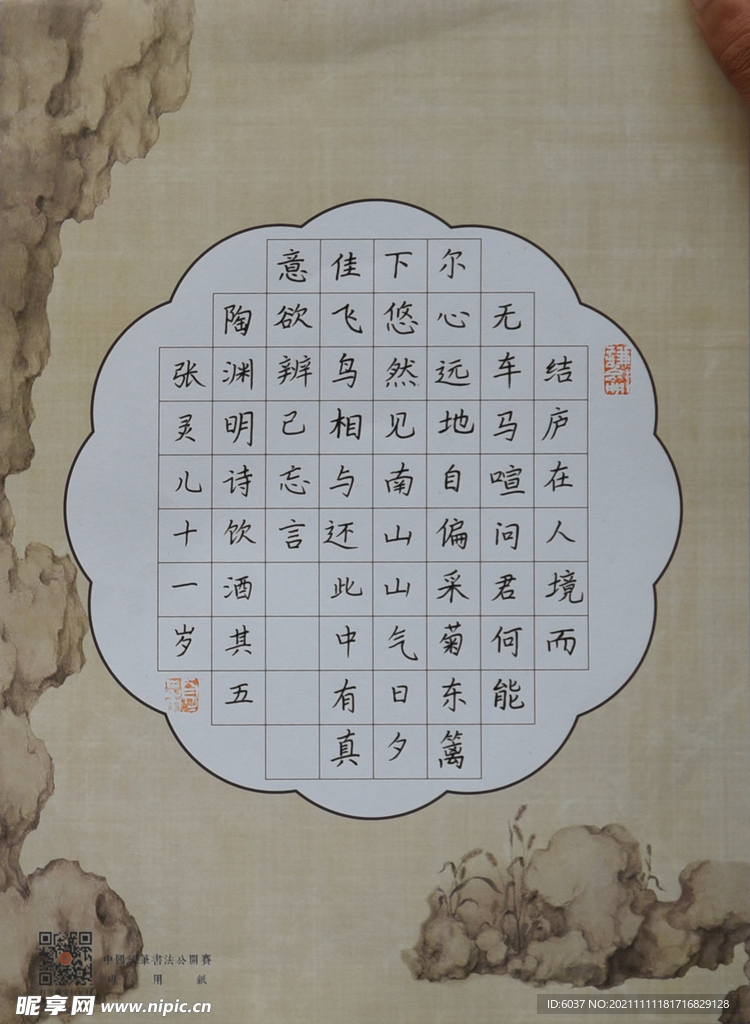 结庐在人境而
无车马喧问君何能
尔心远地自偏采菊东篱
下悠然见南山山气日夕
佳飞鸟相与还此中有真
意欲辨已忘言
陶渊明诗饮酒其五
张灵儿十一岁
书法公開賽
用紙
昵享网 www.nipic.cn
ID:6037 NO:20211111181716829128